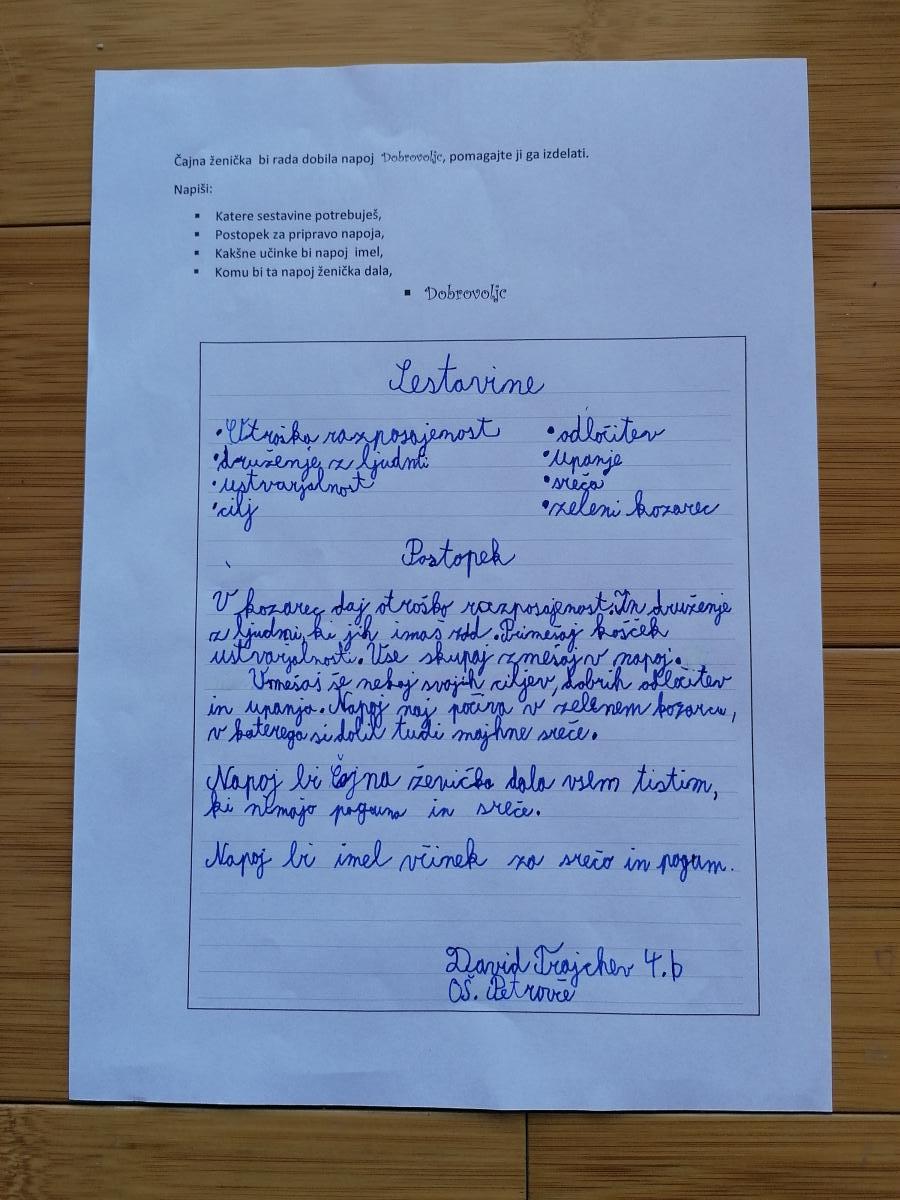 Čajna ženička bi rada dobila napoj Dobrovoljc, pomagajte ji ga izdelati.
Napiši:
▪ Katere sestavine potrebuješ,
▪ Postopek za pripravo napoja,
▪ Kakšne učinke bi napoj imel,
▪ Komu bi ta napoj ženička dala,
▪ Dobrovoljc
Sestavine
•Otroška razposajenost •odločitev
•druženje z ljudmi •upanje
•ustvarjalnost •sreča
•cilj •zeleni kozarec
Postopek
V kozarec daj otroško razposajenost. In druženje
z ljudmi, ki jih imaš rad. Primešaj košček
ustvarjalnosti. Vse skupaj zmešaj v napoj.
Vmešaj še nekaj svojih ciljev, dobrih odločitev
in upanja. Napoj naj počiva v zelenem kozarcu,
v katerega si dolil tudi majhne sreče.
Napoj bi Čajna ženička dala vsem tistim,
ki nimajo poguma in sreče.
Napoj bi imel včinek za srečo in pogum.
David Trajchev 4.b
OŠ. Petrovče